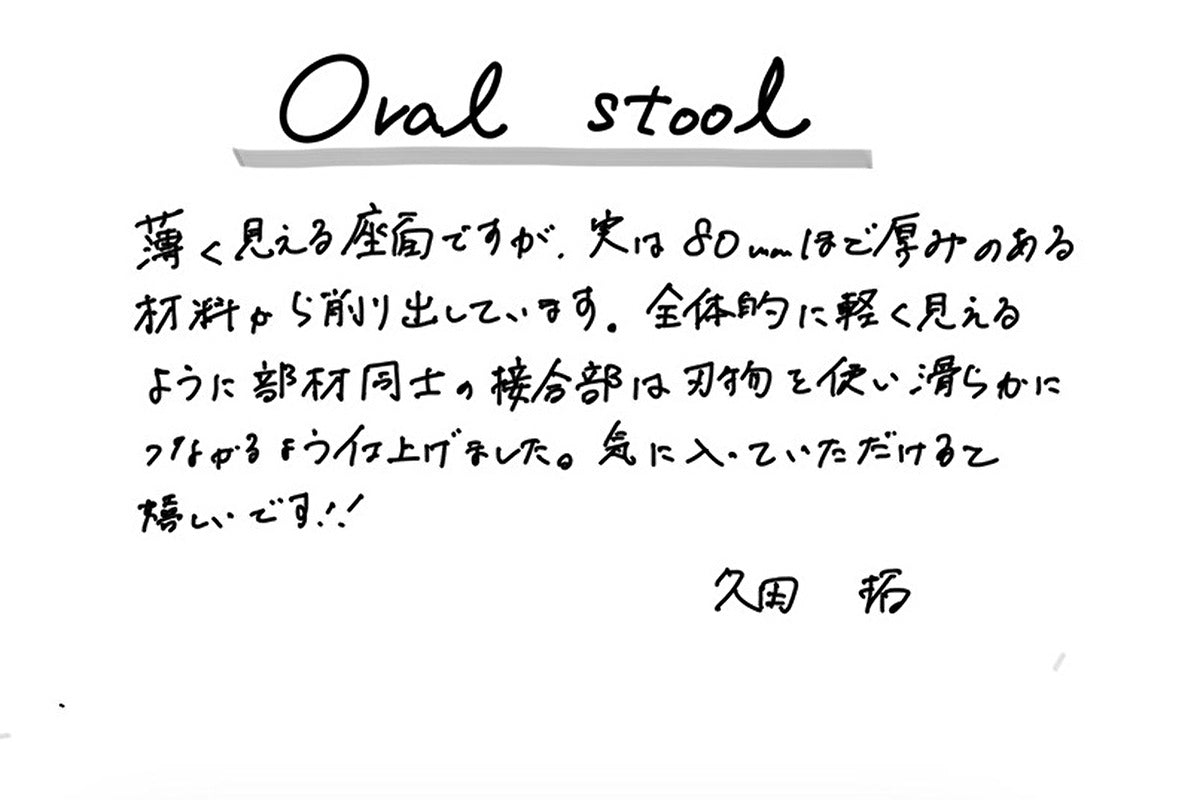 Oval stool
薄く見える座面ですが、実は80mmほど厚みのある
材料から削り出しています。全体的に軽く見える
ように部材同士の接合部は刃物を使い滑らかに
つながるよう仕上げました。気に入っていただけると
嬉しいです!!
久田 拓